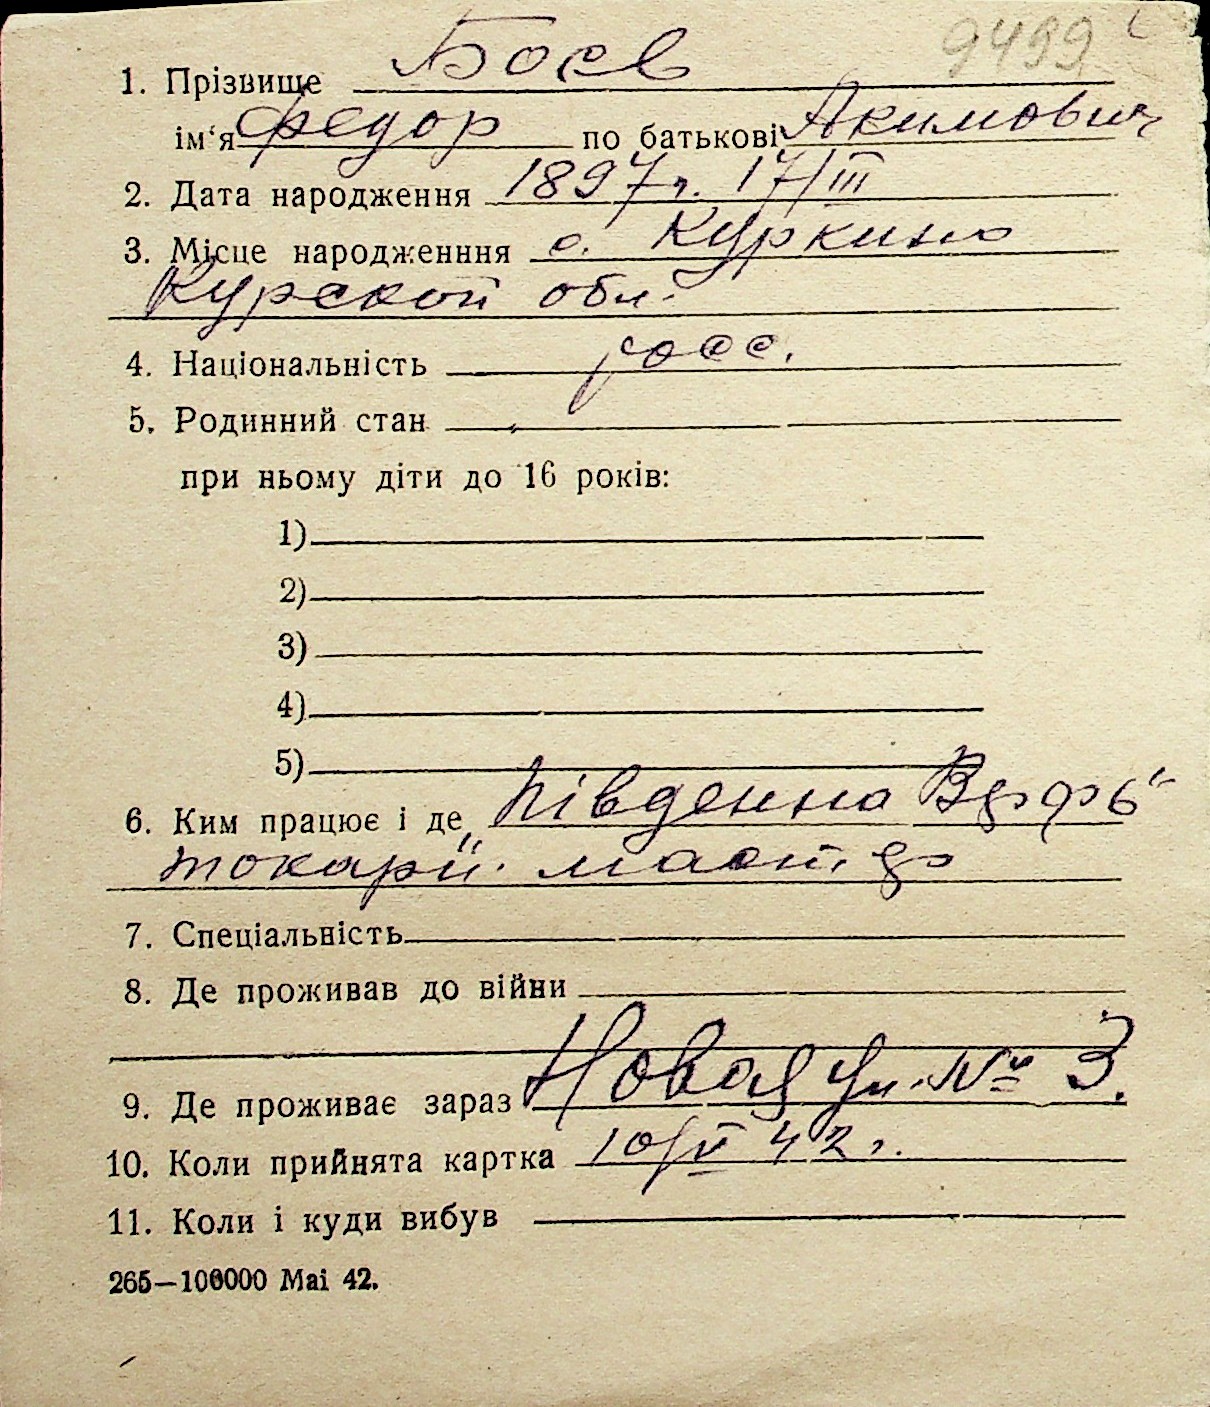 9499
1. Прізвище Боев
ім'я Федор по батькові Акимович
2. Дата народження 1897 г. 17/III
3. Місце народженння с. Куркино
Курской обл.
4. Національність росс.
5. Родинний стан
при ньому діти до 16 років:
1)
2)
3)
4)
5)
6. Ким працює і де Південна Верфь"
токарн. маст
7. Спеціальність
8. Де проживав до війни
9. Де проживає зараз Новая ул. № 3.
10. Коли прийнята картка 10/V 42 г.
11. Коли і куди вибув
265—100000 Mai 42.